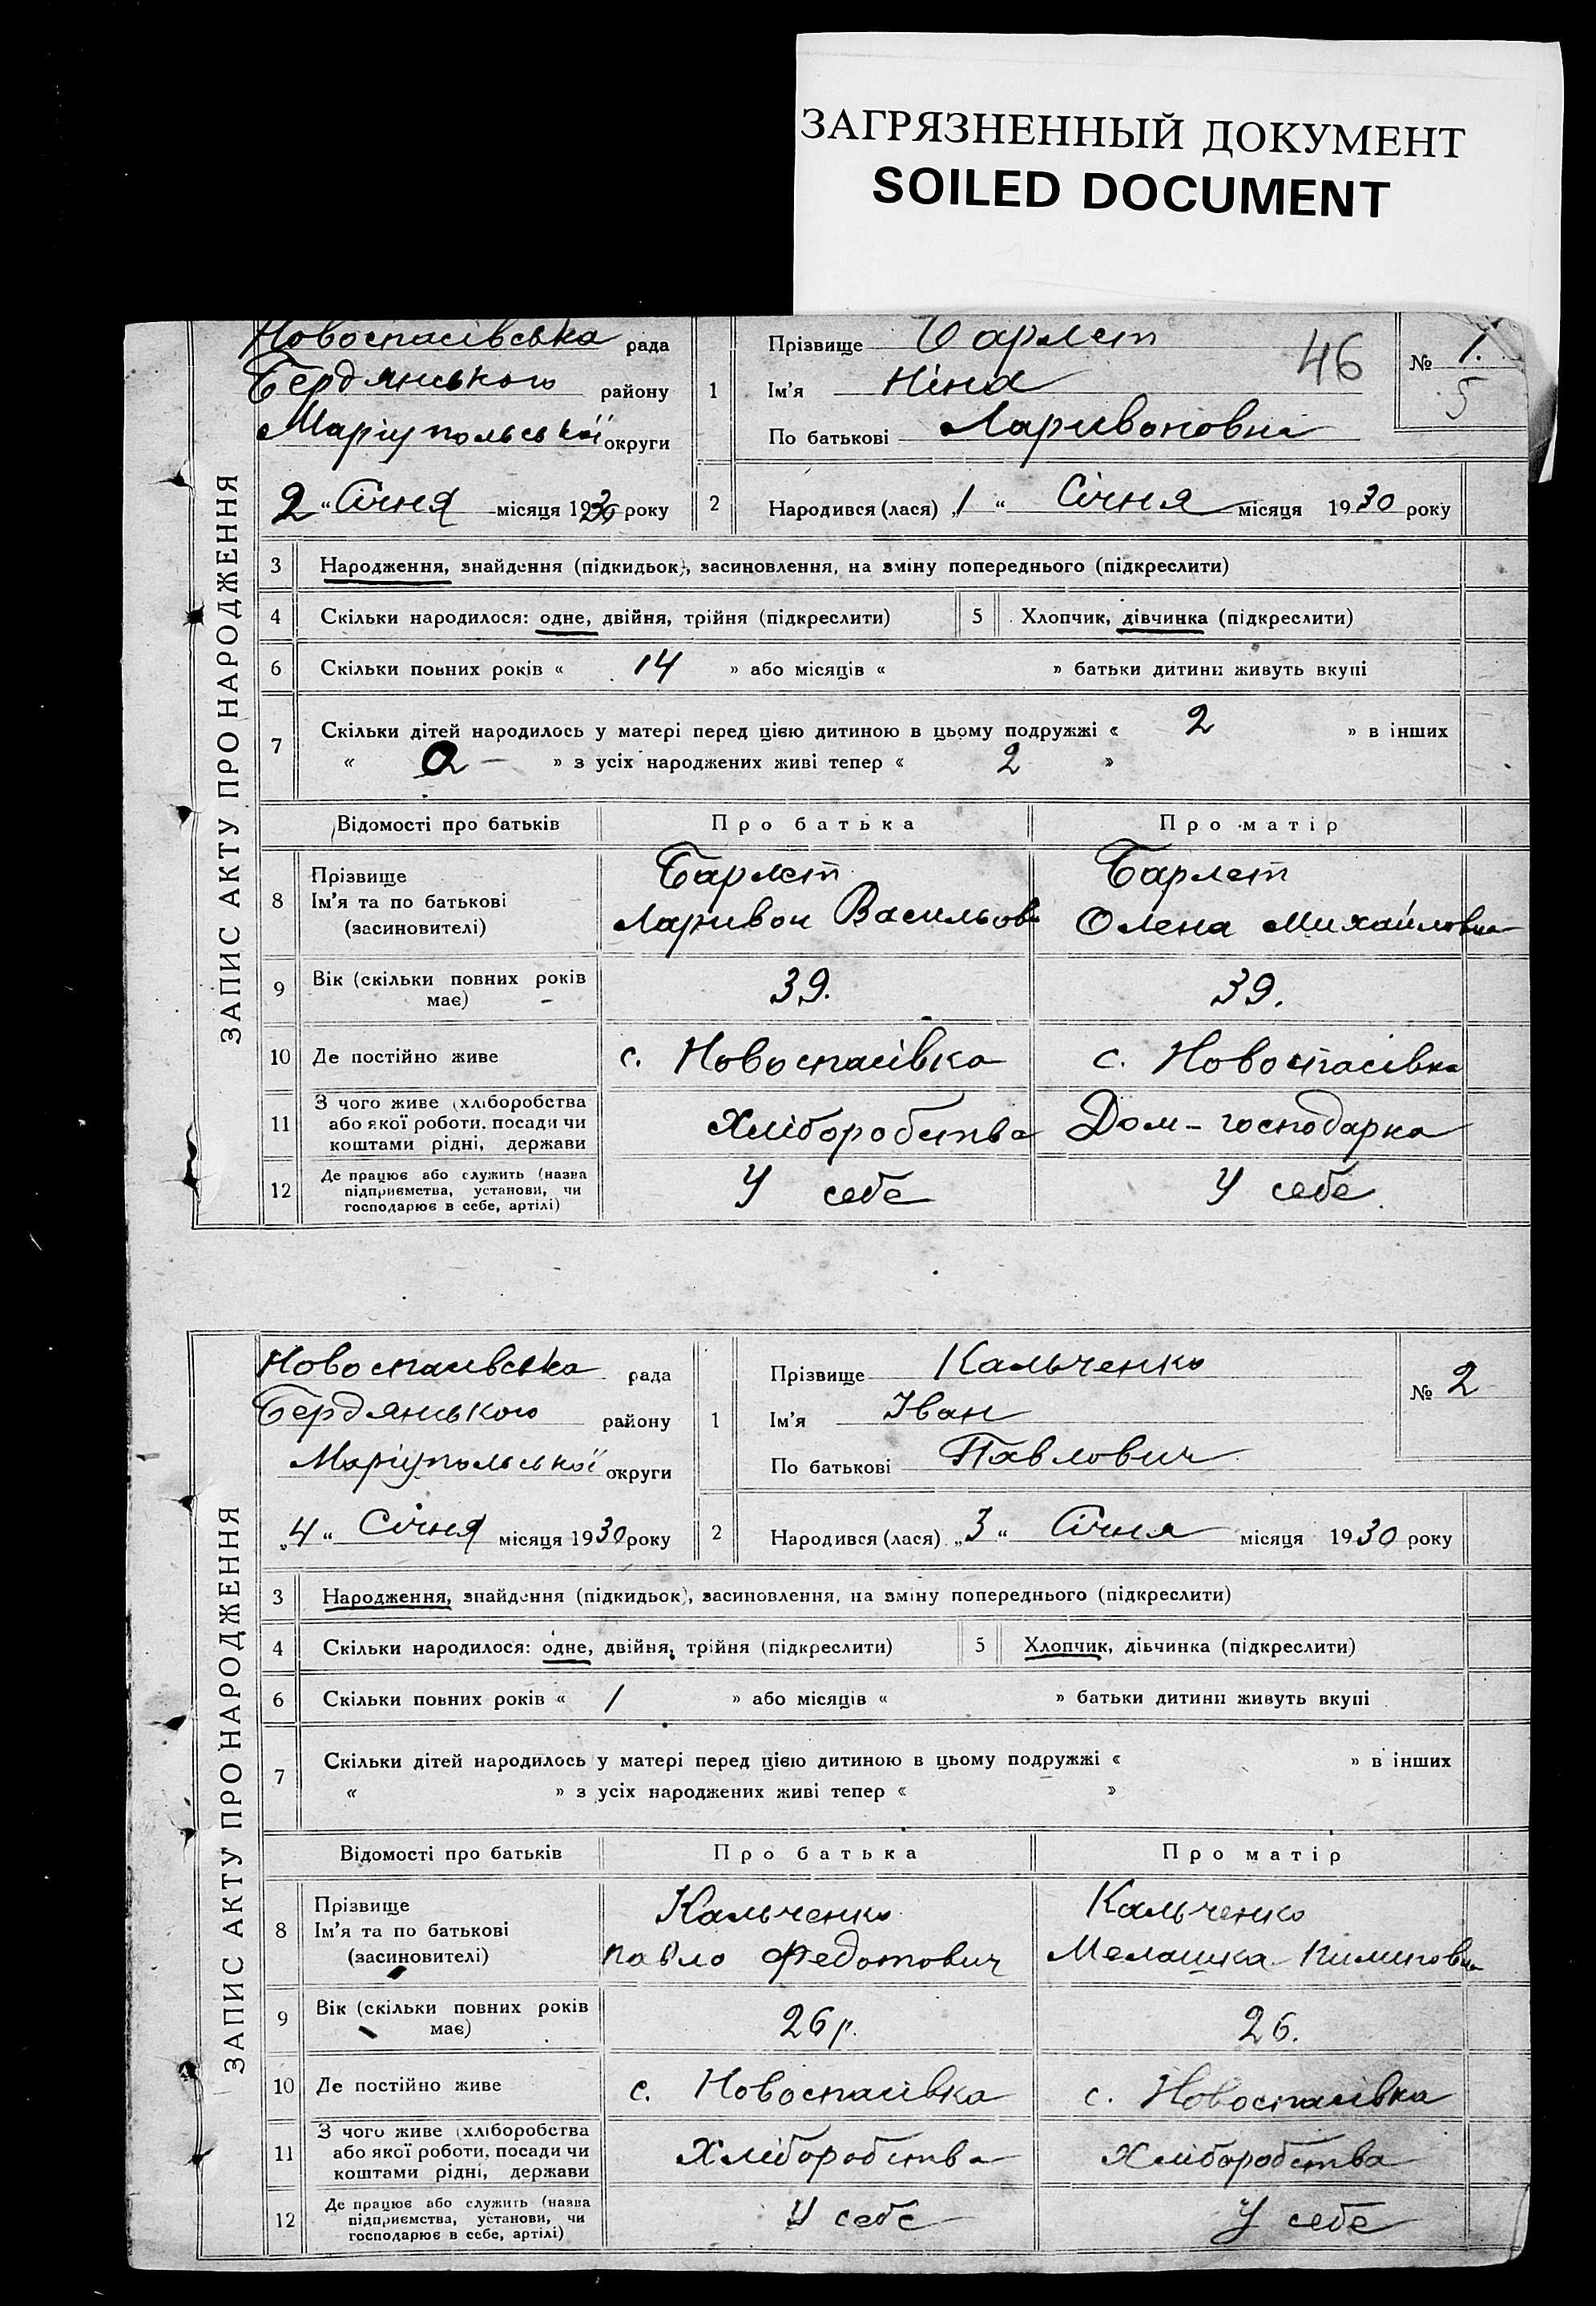 ЗАГРЯЗНЕННЫЙ ДОКУМЕНТ
SOILED DOCUMENT
ЗАПИС АКТУ ПРО НАРОДЖЕННЯ
Новоспасівська рада
Бердянського району
Маріупольської округи
2 "Січня місяця 1930 року
1 Прізвище Барлет
Ім'я Ніна
По батькові Ларивоновна
46
№ 1.
5
2 Народився (лася) „1 “ Січня місяця 1930 року
3 Народження, знайдення (підкидьок), засиновлення, на зміну попереднього (підкреслити)
4 Скільки народилося: одне, двійня, трійня (підкреслити) 5 Хлопчик, дівчинка (підкреслити)
6 Скільки повних років « 14 » або місяців « » батьки дитини живуть вкупі
7 Скільки дітей народилось у матері перед цією дитиною в цьому подружжі « 2 » в інших
« » з усіх народжених живі тепер « 2 »
Відомості про батьків Про батька Про матір
8 Прізвище Ім'я та по батькові (засиновителі)
Барлет Барлет
Ларивон Васильов Олена Михайловна
9 Вік (скільки повних років має) 39. 39.
10 Де постійно живе с. Новоспасівка с. Новоспасівка
11 З чого живе (хліборобства
або якої роботи, посади чи
коштами рідні, держави
Хліборобства Дом-господарка
12 Де працює або служить (назва
підприємства, установи, чи
господарює в себе, артілі)
У себе У себе
ЗАПИС АКТУ ПРО НАРОДЖЕННЯ
Новоспасівська рада
Бердянського району
Маріупольської округи
„4 “ Січня місяця 1930 року
1 Прізвище Кальченко
Ім'я Іван
По батькові Павлович
№ 2
2 Народився (лася) „3 “ Січня місяця 1930 року
3 Народження, знайдення (підкидьок), засиновлення, на зміну попереднього (підкреслити)
4 Скільки народилося: одне, двійня, трійня (підкреслити) 5 Хлопчик, дівчинка (підкреслити)
6 Скільки повних років « 1 » або місяців « » батьки дитини живуть вкупі
7 Скільки дітей народилось у матері перед цією дитиною в цьому подружжі « » в інших
« » з усіх народжених живі тепер « »
Відомості про батьків Про батька Про матір
8 Прізвище Ім'я та по батькові (засиновителі)
Кальченко Кальченко
Павло Федотович Мелашка Пилиповна
9 Вік (скільки повних років має) 26 р. 26.
10 Де постійно живе с. Новоспасівка с. Новоспасівка
11 З чого живе (хліборобства
або якої роботи, посади чи
коштами рідні, держави
Хліборобства Хліборобства
12 Де працює або служить (назва
підприємства, установи, чи
господарює в себе, артілі)
У себе У себе